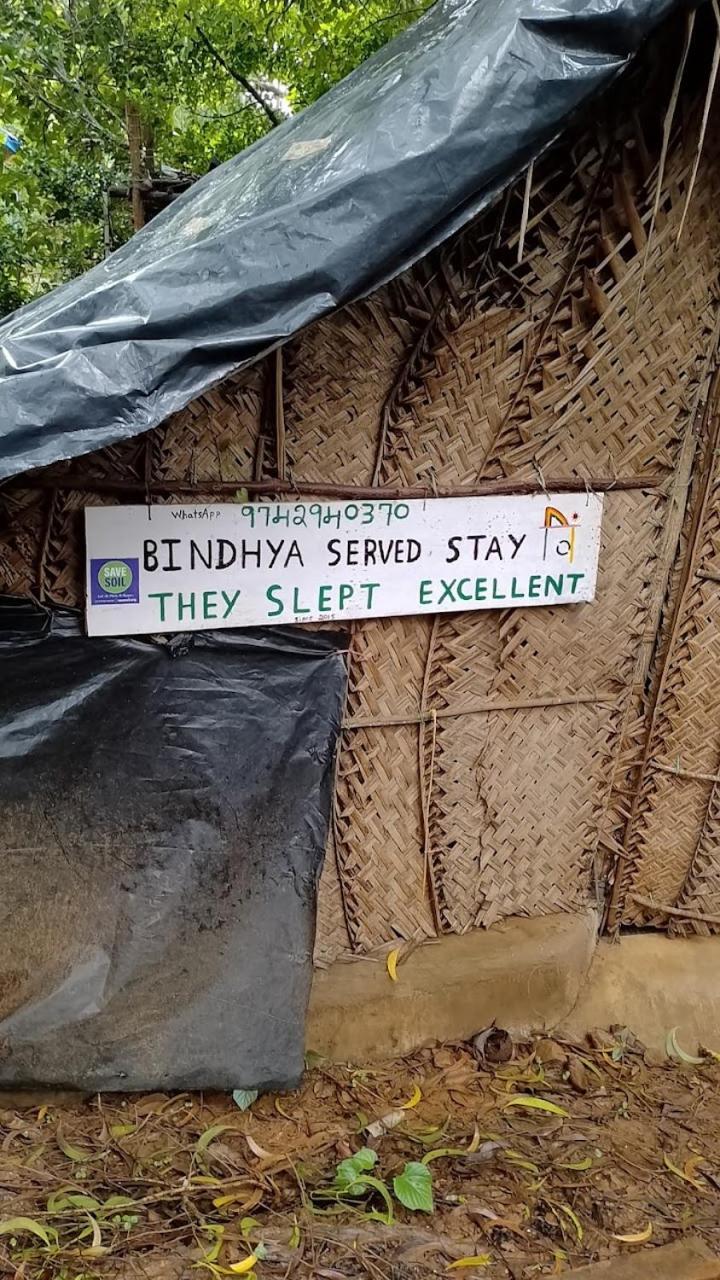 WhatsApp 9742940370
BINDHYA SERVED STAY
SAVE
SOIL
THEY SLEPT EXCELLENT
since 2015